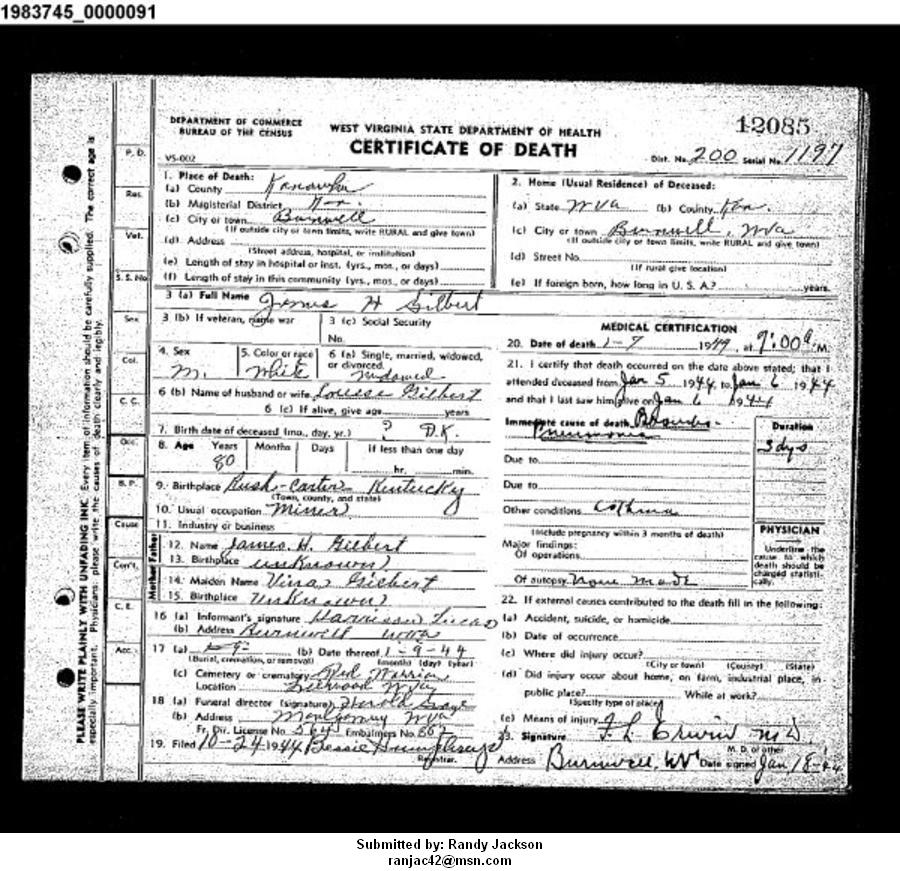 1983745_0000091
DEPARTMENT OF COMMERCE
BUREAU OF THE CENSUS
WEST VIRGINIA STATE DEPARTMENT OF HEALTH
CERTIFICATE OF DEATH
12085
VS-002
Dist. No. 200 Serial No. 1197
PLEASE WRITE PLAINLY WITH UNFADING INK. Every item of information should be carefully supplied. The correct age is
especially important. Physicians: please write the causes of death clearly and legibly.
P. D.
Res.
Vet.
S. S. No.
Sex
Col.
C. C.
Occ.
B. P.
Cause
Con't.
C. E.
Acc.
1. Place of Death:
(a) County Kanawha
(b) Magisterial District
(c) City or town Burnwell
(If outside city or town limits, write RURAL and give town)
(d) Address
(Street address, hospital, or institution)
(e) Length of stay in hospital or inst. (yrs., mos., or days)
(f) Length of stay in this community (yrs., mos., or days)
2. Home (Usual Residence) of Deceased:
(a) State W Va (b) County Kan.
(c) City or town Burnwell, W Va
(If outside city or town limits, write RURAL and give town)
(d) Street No.
(If rural give location)
(e) If foreign born, how long in U. S. A.? years.
3 (a) Full Name James H Gilbert
3 (b) If veteran, name war
3 (c) Social Security
No.
4. Sex
M.
5. Color or race
White
6 (a) Single, married, widowed,
or divorced.
Widowed
6 (b) Name of husband or wife Louise Gilbert
6 (c) If alive, give age years
7. Birth date of deceased (mo., day, yr.) ? D.K.
8. Age Years Months Days If less than one day
80 hr. min.
9. Birthplace Rush - Carter Kentucky
(Town, county, and state)
10. Usual occupation Miner
11. Industry or business
Father
12. Name James. H. Gilbert
13. Birthplace unknown
Mother
14. Maiden Name Vina Gilbert
15. Birthplace Unknown
16 (a) Informant's signature Harrison Lucas
(b) Address Burnwell W Va
17 (a) (b) Date thereof 1-9-44
(Burial, cremation, or removal) (month) (day) (year)
(c) Cemetery or crematory Red Warrior
Location W Va
18 (a) Funeral director (signature) Harold
(b) Address Montgomery W Va
Fr. Dir. License No. 564 Embalmers No. 867
19. Filed 10-24 1944 Bessie Humphreys
Registrar.
MEDICAL CERTIFICATION
20. Date of death 1-7 1949, at 9:00 a. M.
21. I certify that death occurred on the date above stated; that I
attended deceased from Jan 5 1944 to Jan 6 1944
and that I last saw him alive on Jan 6 1944
Immediate cause of death Broncho-
Pneumonia
Duration
3 dys
Due to
Due to
Other conditions
(Include pregnancy within 3 months of death)
Major findings:
Of operations
Of autopsy None made
PHYSICIAN
Underline the
cause to which
death should be
charged statisti-
cally.
22. If external causes contributed to the death fill in the following:
(a) Accident, suicide, or homicide
(b) Date of occurrence
(c) Where did injury occur?
(City or town) (County) (State)
(d) Did injury occur about home, on farm, industrial place, in
public place? While at work?
(Specify type of place)
(e) Means of injury
23. Signature F. L. Erwin M D.
M. D. or other
Address Burnwell, W V Date signed Jan 18-44
Submitted by: Randy Jackson
ranjac42@msn.com